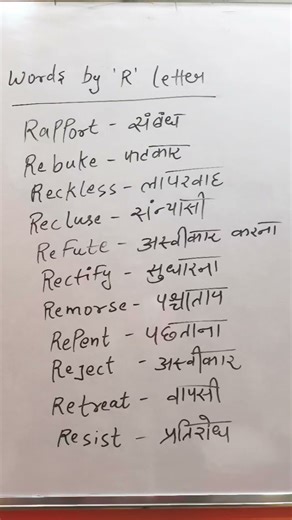 Words by 'R' letter
Rapport - संबंध
Rebuke - फटकार
Reckless - लापरवाह
Recluse - संन्यासी
Refute - अस्वीकार करना
Rectify - सुधारना
Remorse - पश्चाताप
Repent - पछताना
Reject - अस्वीकार
Retreat - वापसी
Resist - प्रतिरोध